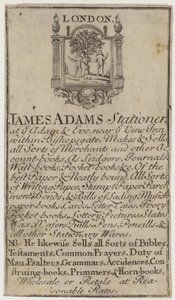 LONDON.
JAMES ADAMS Stationer
at ye Adam & Eve, near ye Vine Inn
within Bishopsgate, Makes & Sells
all Sorts of Merchants and other Ac-
count-books, As Leidgers, Journals,
Wast-books, Pocket-books &c. Of the
best Paper & Neatly bound. All Sorts
of Writing Paper, Stampt Paper, Parch-
ments, Bonds, & Bills of lading, Musick
paper-books, Cards, Letter Cases, Ivory
Pocket-books, Pictures, Slates
Wax, Wafers, Quills, Pens, Pencells, &
all other Stationary Wares.
NB. He likewise Sells all Sorts of Bibles,
Testaments, Common Prayers, Duty of
Man, Psalters, Grammars, Accidences, Con-
struing-books, Primmers & Horn-books,
Wholesale or Retale at Rea-
sonable Rates.